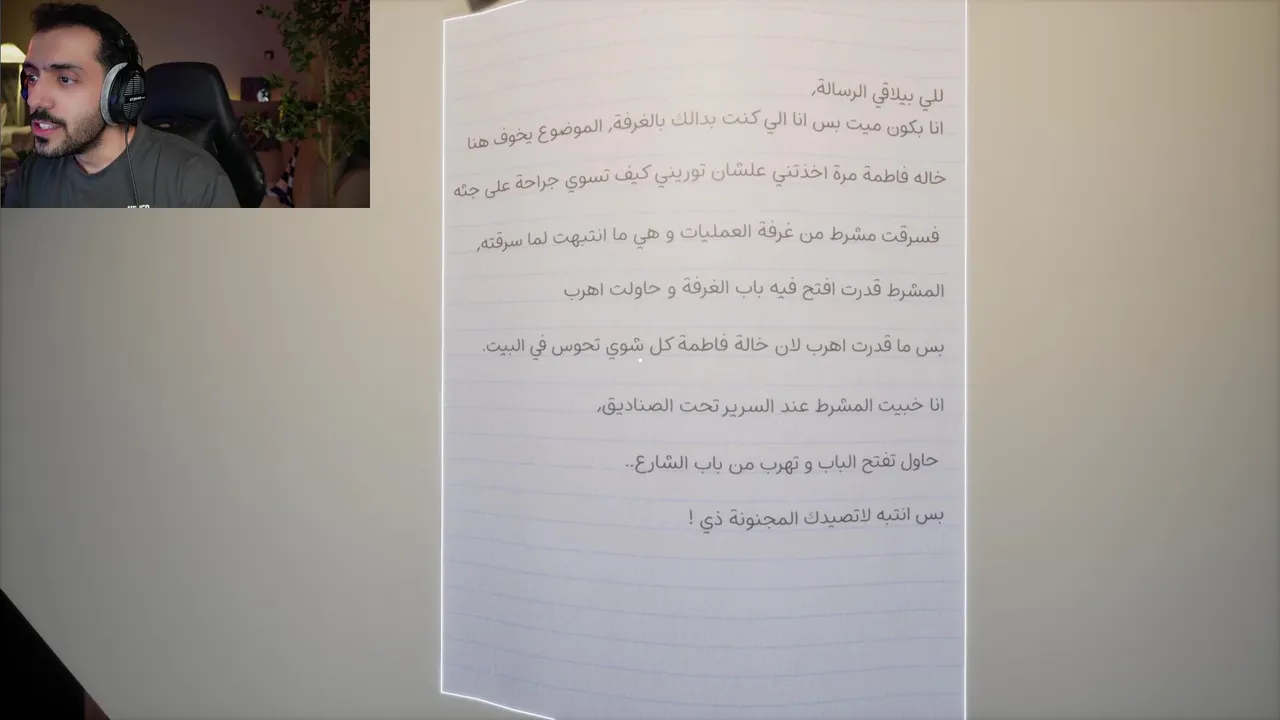 للي بيلاقي الرسالة,
انا بكون ميت بس انا الي كنت بدالك بالغرفة, الموضوع يخوف هنا
خاله فاطمة مرة اخذتني علشان توريني كيف تسوي جراحة على جثه
فسرقت مشرط من غرفة العمليات و هي ما انتبهت لما سرقته,
المشرط قدرت افتح فيه باب الغرفة و حاولت اهرب
بس ما قدرت اهرب لان خالة فاطمة كل شوي تحوس في البيت.
انا خبيت المشرط عند السرير تحت الصناديق,
حاول تفتح الباب و تهرب من باب الشارع..
بس انتبه لاتصيدك المجنونة ذي !